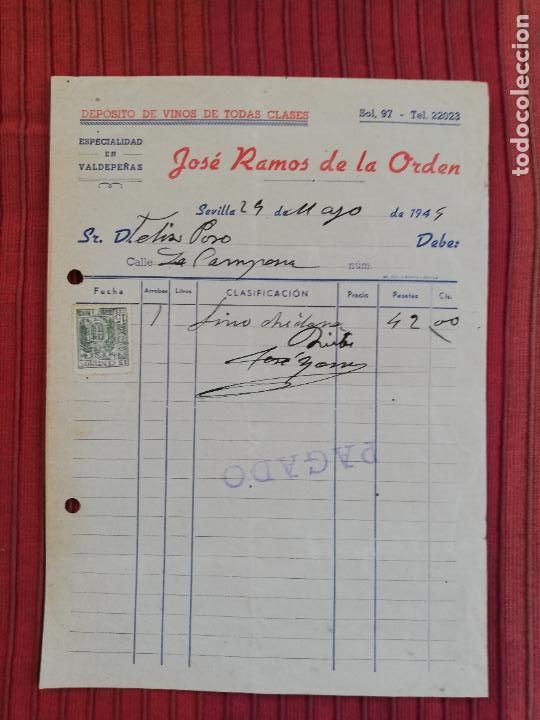 DEPÓSITO DE VINOS DE TODAS CLASES
Sol, 97 - Tel. 22023
ESPECIALIDAD
EN
VALDEPEÑAS
José Ramos de la Orden
Sevilla 29 de Mayo de 1945
Sr. D. Felix Poso Debe:
Calle La Campana núm.
Fecha Arrobas Litros CLASIFICACIÓN Precio Pesetas Cts.
1 42 00
Recibi
José Ramos
PAGADO
todocoleccion